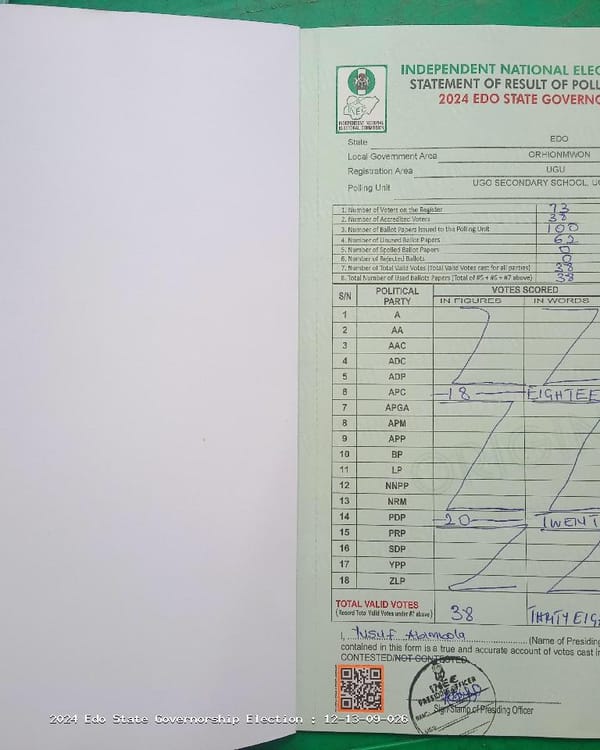 INDEPENDENT NATIONAL ELEC
STATEMENT OF RESULT OF POLL
2024 EDO STATE GOVERNO
INDEPENDENT NATIONAL
ELECTORAL COMMISSION
State EDO
Local Government Area ORHIONMWON
Registration Area UGU
Polling Unit UGO SECONDARY SCHOOL, UG
1. Number of Voters on the Register 73
2. Number of Accredited Voters 38
3. Number of Ballot Papers Issued to the Polling Unit 100
4. Number of Unused Ballot Papers 62
5. Number of Spoiled Ballot Papers 0
6. Number of Rejected Ballots 0
7. Number of Total Valid Votes (Total Valid Votes cast for all parties) 38
8. Total Number of Used Ballots Papers (Total of #5 + #6 + #7 above) 38
S/N POLITICAL PARTY VOTES SCORED
IN FIGURES IN WORDS
1 A
2 AA
3 AAC
4 ADC
5 ADP
6 APC 18 EIGHTEE
7 APGA
8 APM
9 APP
10 BP
11 LP
12 NNPP
13 NRM
14 PDP 20 TWENT
15 PRP
16 SDP
17 YPP
18 ZLP
TOTAL VALID VOTES 38 THIRTY EIG
(Record Total Valid Votes under #7 above)
I, Yusuf Abimbola (Name of Presiding
contained in this form is a true and accurate account of votes cast in
CONTESTED/NOT CONTESTED
PRESIDING OFFICER
Sign/Stamp of Presiding Officer
2024 Edo State Governorship Election : 12-13-09-026